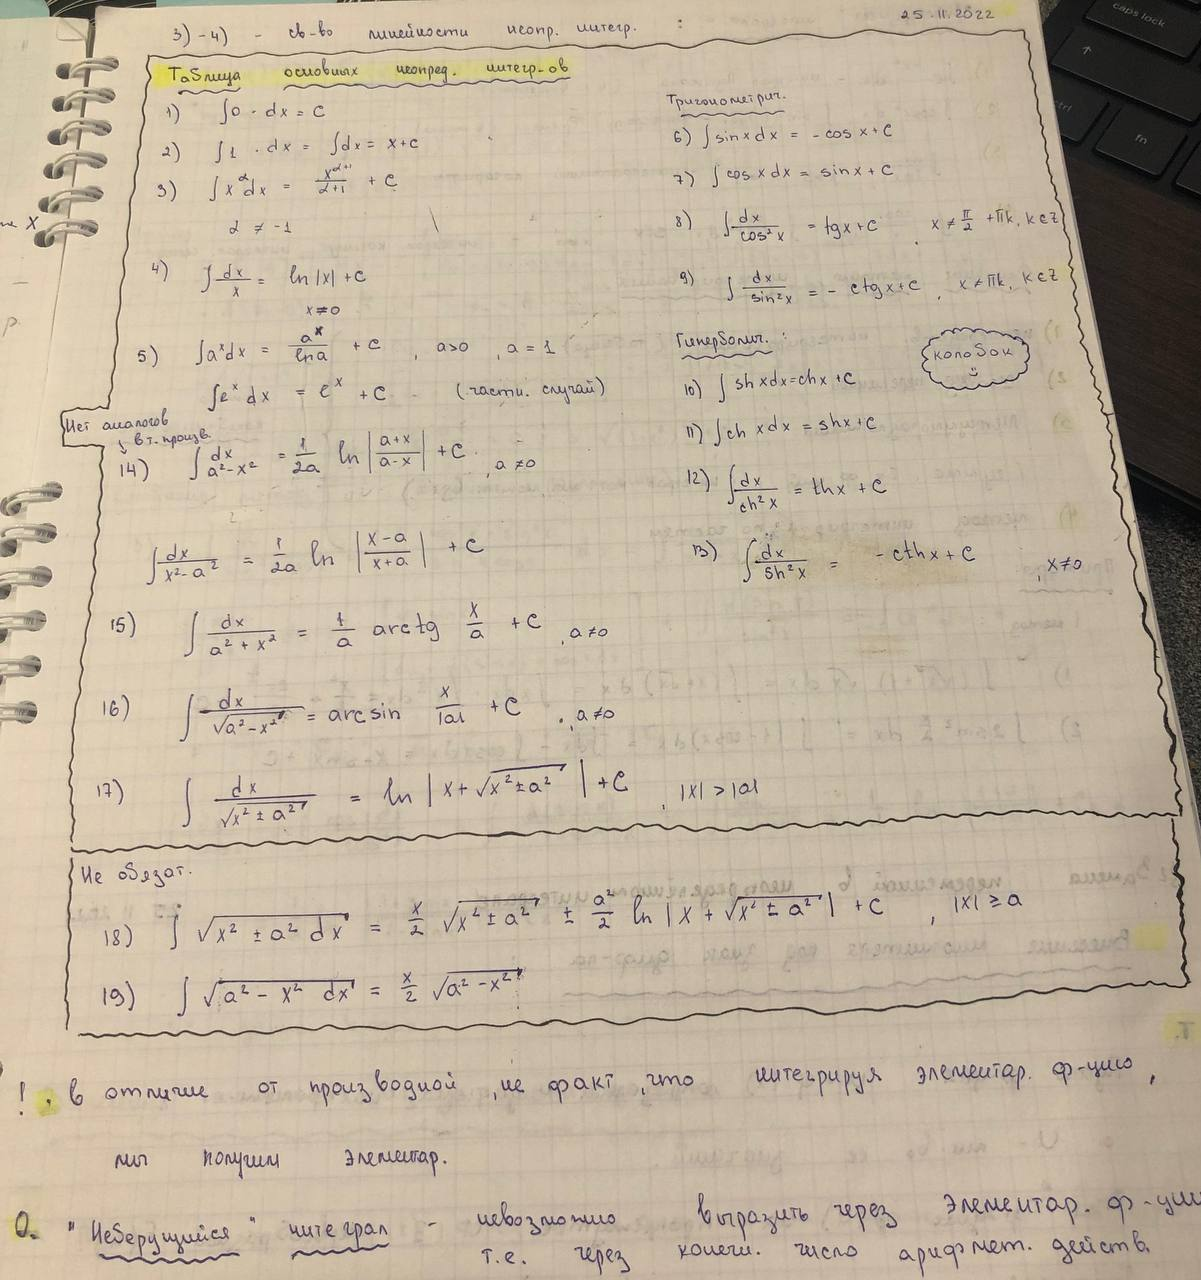 25.11.2022
3) - 4) - св-во линейности неопр. интегр. :
Таблица основных неопред. интегр-ов
1) ∫0 · dx = C
2) ∫1 · dx = ∫dx = x + C
3) ∫x^α dx = x^(α+1)/(α+1) + C
α ≠ -1
4) ∫dx/x = ln|x| + C
x ≠ 0
5) ∫a^x dx = a^x/ln a + C , a>0 , a = 1
∫e^x dx = e^x + C (частн. случай)
Нет аналогов
в т. произв.
14) ∫dx/(a²-x²) = 1/2a ln |(a+x)/(a-x)| + C , a ≠ 0
∫dx/(x²-a²) = 1/2a ln |(x-a)/(x+a)| + C
15) ∫dx/(a²+x²) = 1/a arctg x/a + C , a≠0
16) ∫dx/√(a²-x²) = arcsin x/|a| + C , a≠0
17) ∫dx/√(x²±a²) = ln |x+√(x²±a²)| + C , |x| > |a|
Тригонометрич.
6) ∫sinxdx = -cosx + C
7) ∫cosxdx = sinx + C
8) ∫dx/cos²x = tgx + C , x ≠ π/2 + πk, k∈Z
9) ∫dx/sin²x = - ctgx + C , x ≠ πk, k∈Z
Гиперболич. :
колобок
10) ∫shxdx = chx + C
11) ∫chxdx = shx + C
12) ∫dx/ch²x = thx + C
13) ∫dx/sh²x = -cthx + C , x≠0
Не обязат.
18) ∫√(x² ± a² dx) = x/2 √(x² ± a²) ± a²/2 ln |x + √(x² ± a²)| + C , |x| ≥ a
19) ∫√(a² - x² dx) = x/2 √(a² - x²)
! . в отличие от производной, не факт, что интегрируя элементар. ф-цию,
мы получим элементар.
О. "Неберущийся" интеграл - невозможно выразить через элементар. ф-ции
т.е. через конечн. число арифмет. действ.